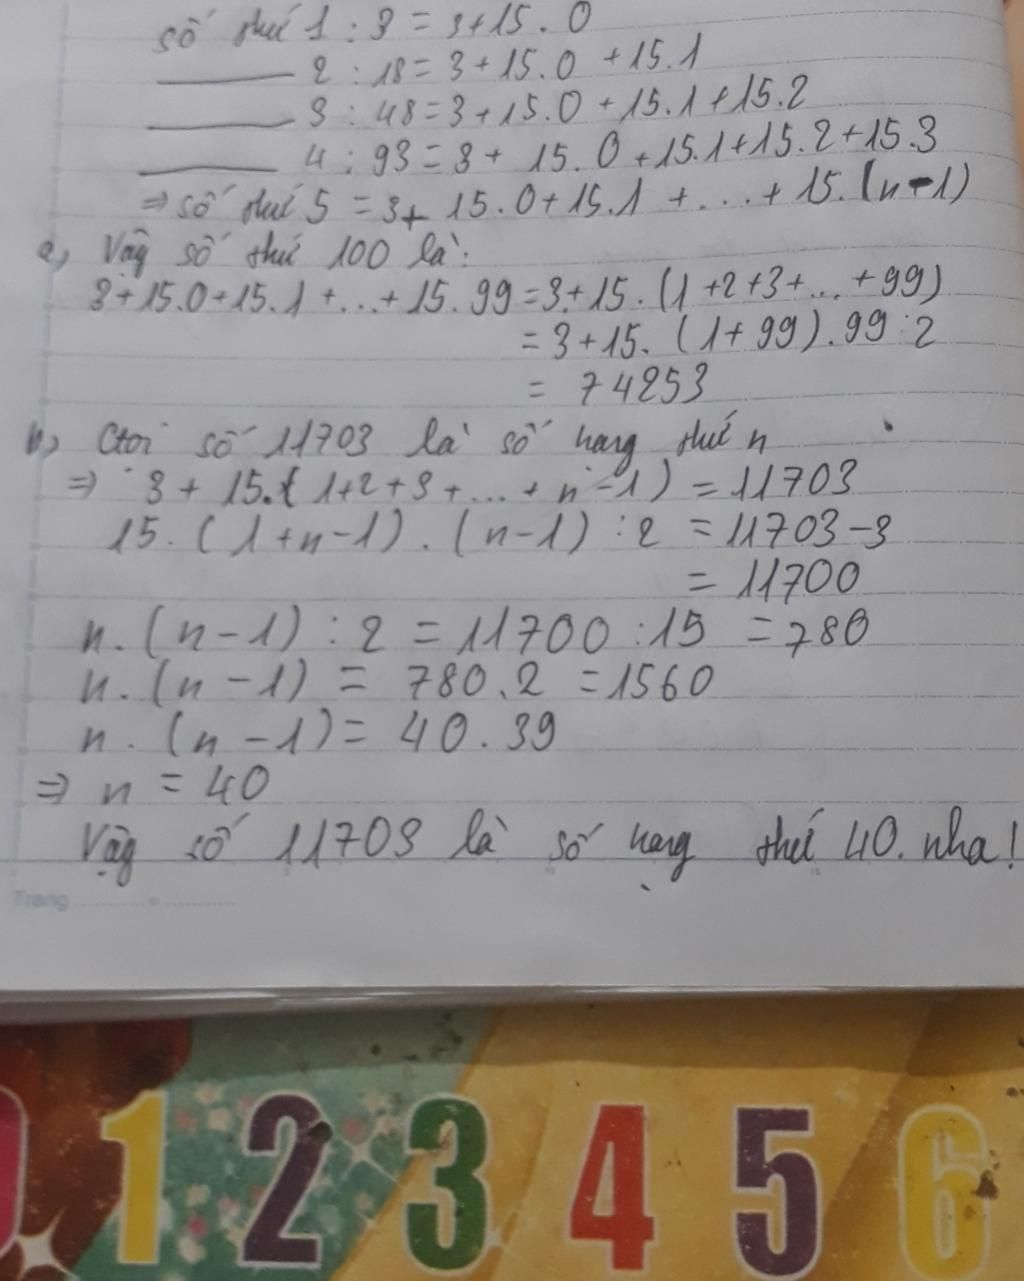 số thứ 1 : 3 = 3+15.0
2 : 18 = 3+15.0 +15.1
3 : 48 = 3+15.0+15.1+15.2
4 : 93 = 3+ 15.0+15.1+15.2+15.3
⇒ số thứ 5 = 3+ 15.0+15.1 + ... + 15.(n-1)
a, Vậy số thứ 100 là:
3+15.0+15.1+...+15.99=3+15.(1+2+3+...+99)
= 3+15.(1+99).99:2
= 74253
b, Gọi số 11703 là số hạng thứ n
⇒ 3 + 15.(1+2+3+...+n-1) = 11703
15.(1+n-1).(n-1) :2 = 11703-3
= 11700
n.(n-1) : 2 = 11700 :15 = 780
n.(n-1) = 780.2 =1560
n.(n-1) = 40.39
⇒ n = 40
Vậy số 11703 là số hạng thứ 40. nha!
Trang
1 2 3 4 5 6